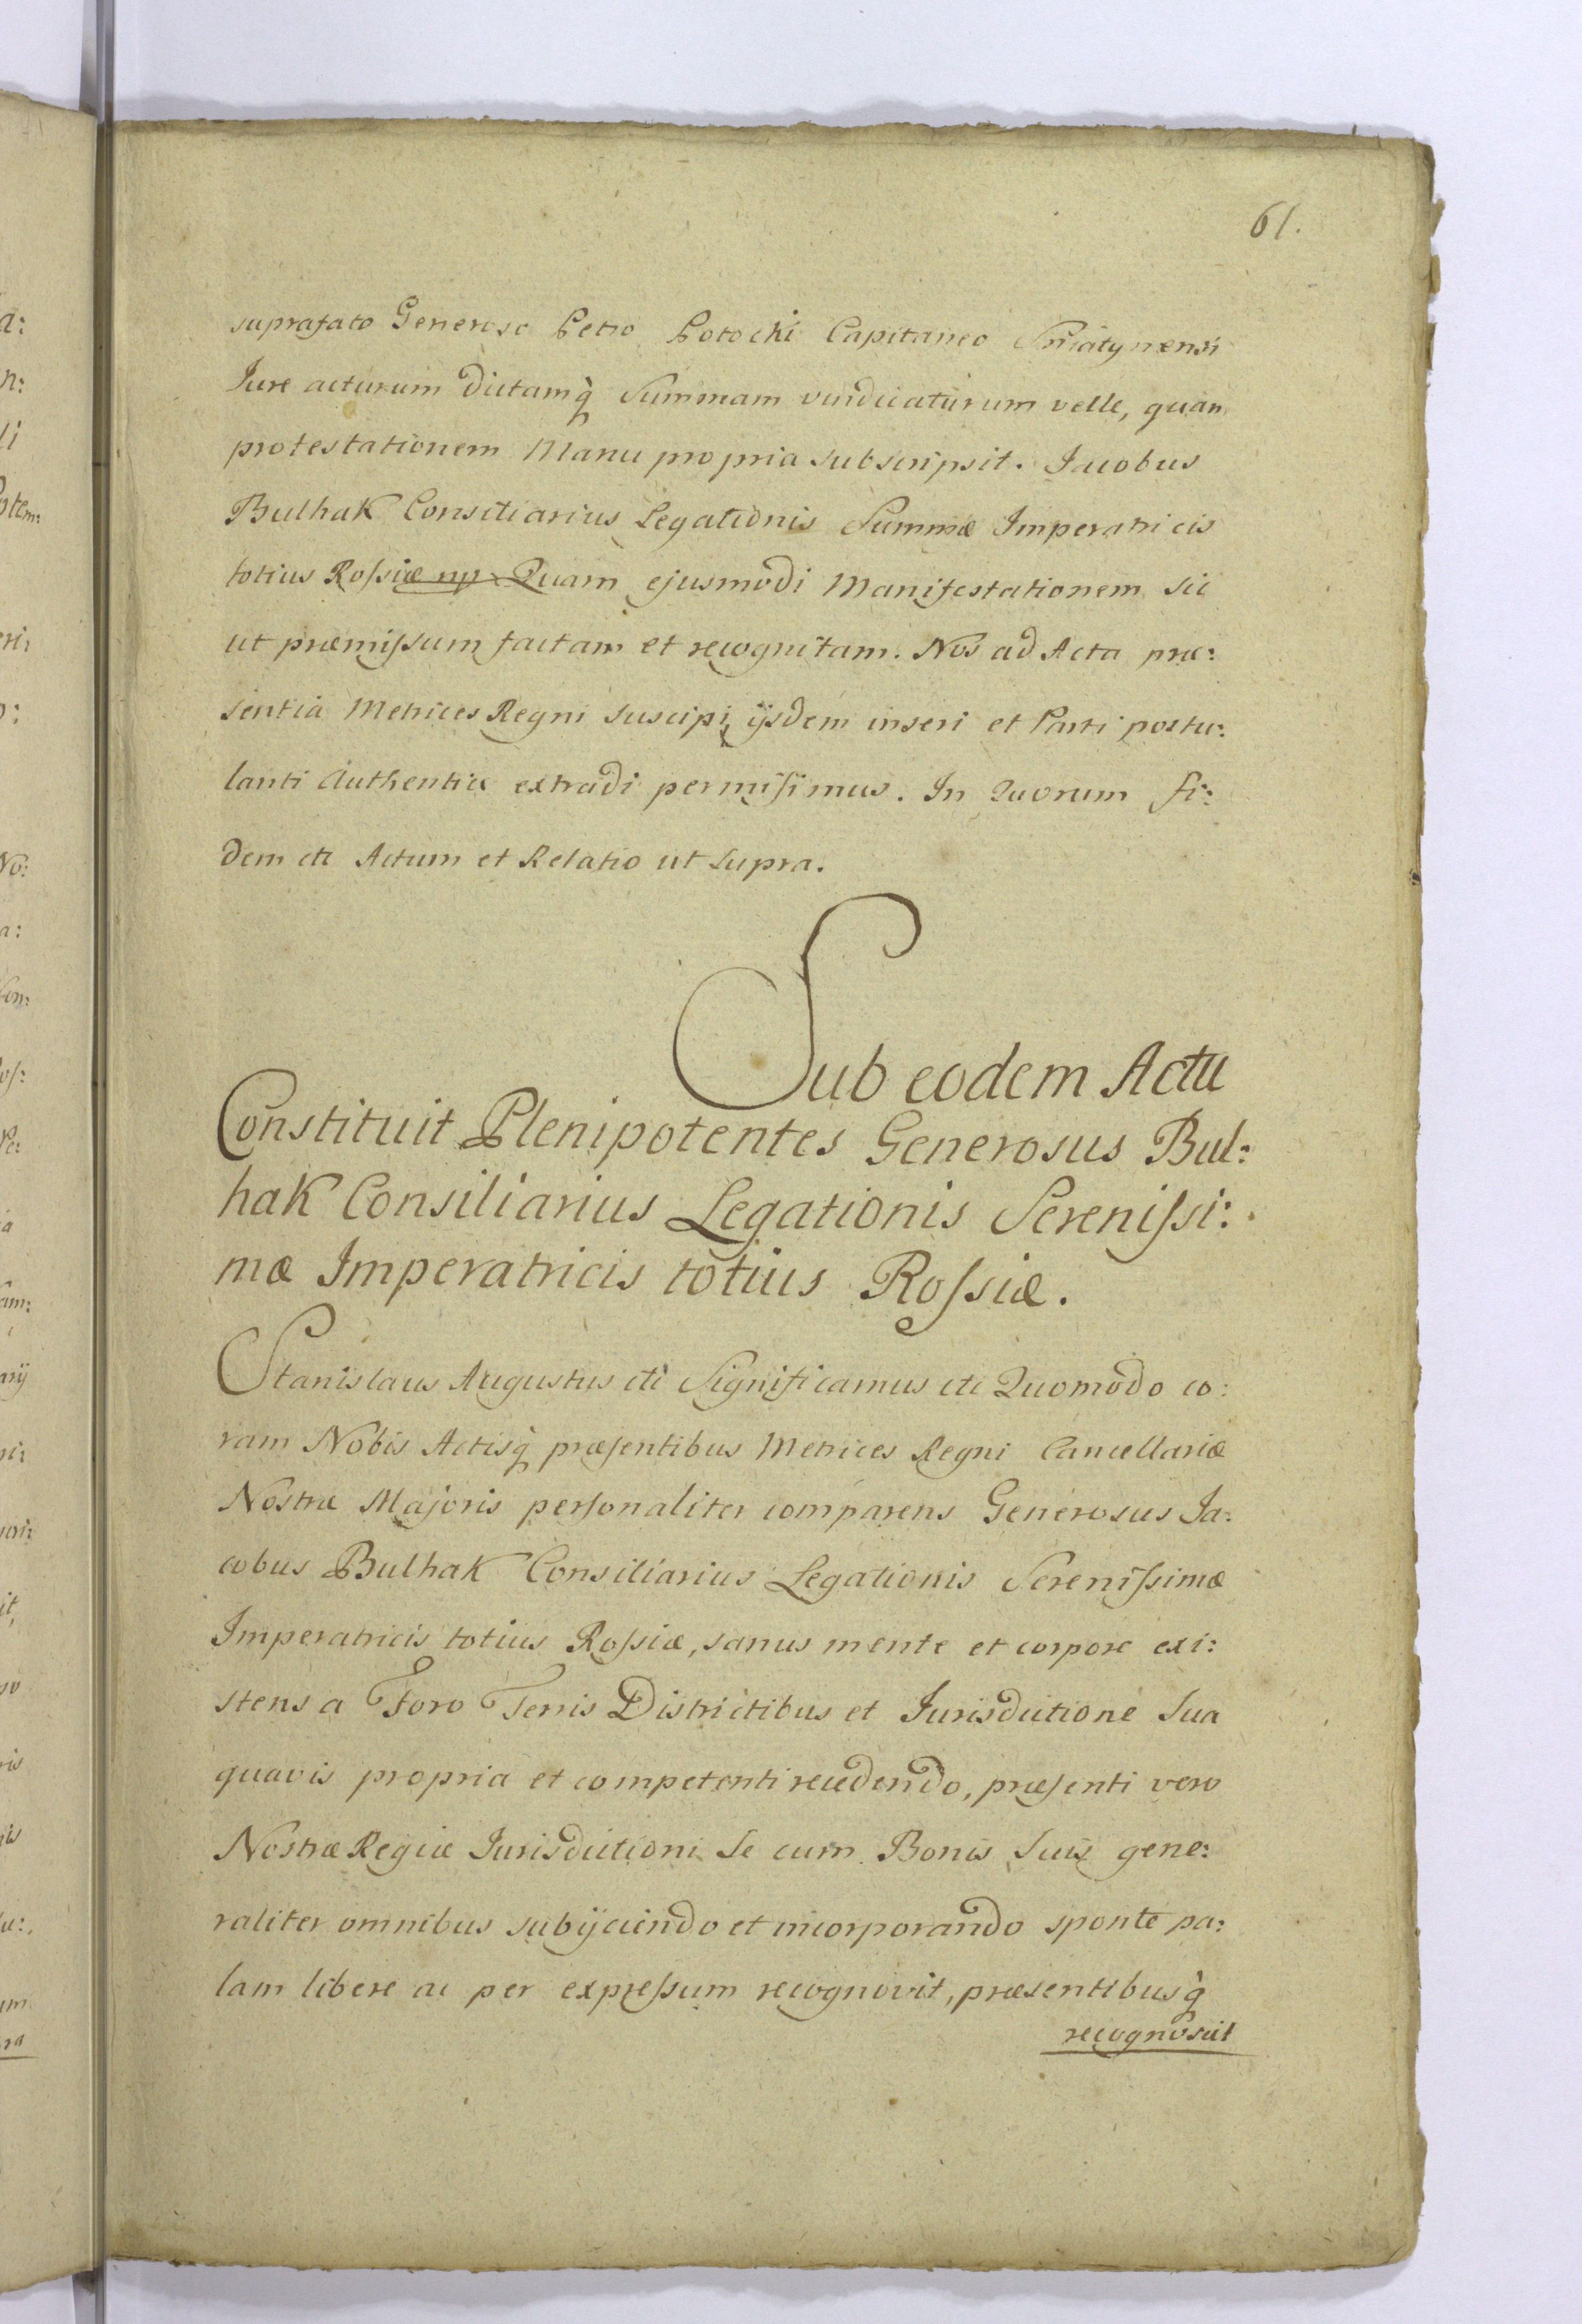 61.
suprafato Generoso Petro Potocki Capitaneo Sniatynensi
Jure acturum dictamq̀ Summam vindicaturum velle, quam
protestationem Manu propria subscripsit. Jacobus
Bulhak Consiliarius Legationis Summæ Imperatricis
totius Roſsiæ mp. Quam ejusmodi Manifestationem sic
ut præmiſsum factam et recognitam. Nos ad Acta præ:
sentia Metrices Regni suscipi, ijsdem inseri et Parti postu:
lanti Authentice extradi permiſimus. In Quorum fi:
dem etc Actum et Relatio ut supra.
Sub eodem Actu
Constituit Plenipotentes Generosus Bul:
hak Consiliarius Legationis Sereniſsi:
mæ Imperatricis totius Roſsiæ.
Stanislaus Augustus etc Significamus etc Quomodo co:
ram Nobis Actisq̀ præſentibus Metrices Regni Cancellariæ
Nostræ Majoris perſonaliter comparens Generosus Ja:
cobus Bulhak Consiliarius Legationis Sereniſsimæ
Imperatricis totius Roſsiæ, sanus mente et corpore exi:
stens a Foro Terris Districtibus et Jurisdictione sua
quavis propria et competenti recedendo, præſenti vero
Nostræ Regiæ Jurisdictioni se cum Bonis suis gene:
raliter omnibus subijciendo et incorporando sponte pa:
lam libere ac per expreſsum recognovit, præsentibusq̀
recognoscit
a:
n:
li
eri:
o:
No:
a:
Pe:
a
arij
it,
ris